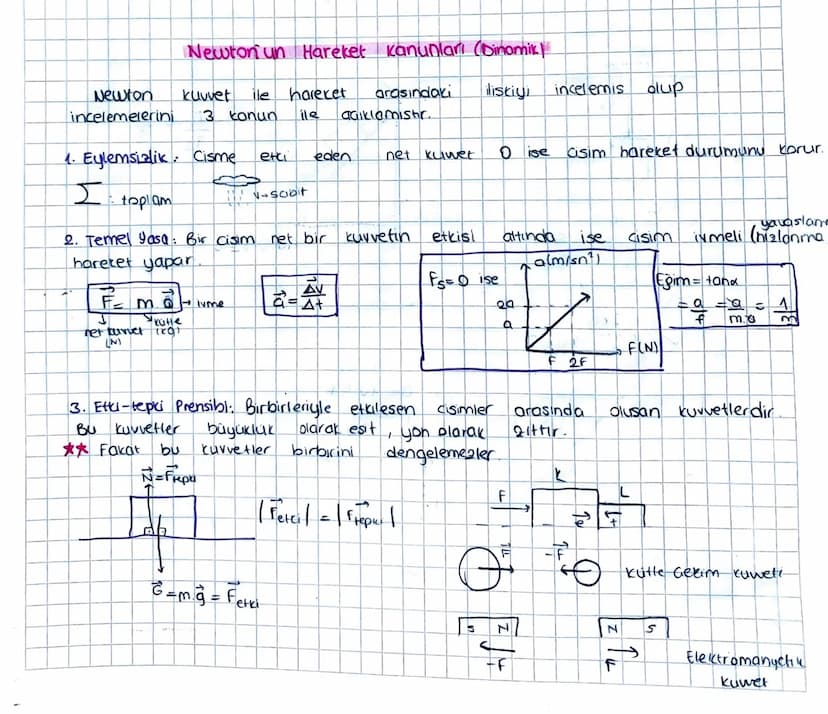 Newton'un Hareket Kanunları (Dinamik)
Newton kuvvet ile hareket arasındaki ilişkiyi incelemiş olup
incelemelerini 3 kanun ile açıklamıştır.
1. Eylemsizlik: Cisme etki eden net kuvvet 0 ise cisim hareket durumunu korur.
Σ: toplam
V→sabit
2. Temel Yasa: Bir cisim net bir kuvvetin etkisi altında ise cisim ivmeli (hızlanma
yavaşlama
hareket yapar.
F = m a → ivme
net kuvvet (N)
kütle (kg)
a = Δv/Δt
Fs=0 ise
a(m/sn²)
2a
a
F 2F
F(N)
Eğim = tanα
= a/F = a/m.a = 1/m
3. Etki-tepki Prensibi: Birbirleriyle etkileşen cisimler arasında oluşan kuvvetlerdir.
Bu kuvvetler büyüklük olarak eşit, yön olarak zıttır.
** Fakat bu kuvvetler birbirini dengelemezler
N=Ftepki
|Fetki| = |Ftepki|
G=m.g = Fetki
F
K
L
e
t
F
-F
Kütle Çekim kuvveti
S N
N S
-F
F
Elektromanyetik
kuvvet